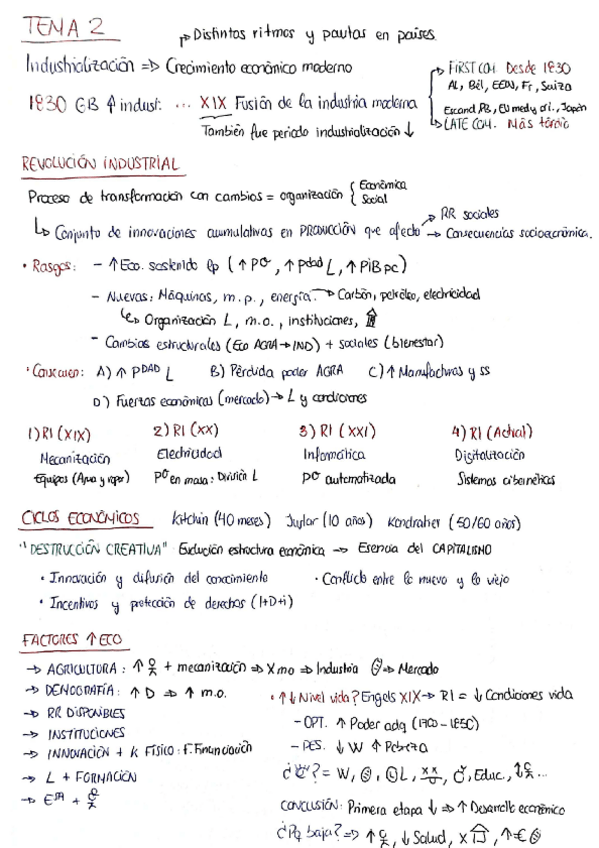 TEMA 2
Distintos ritmos y pautas en países.
Industrialización => Crecimiento económico moderno
FIRST COM. Desde 1830
AL, Bél, EEUU, Fr, Suiza
1830 GB ↑ indust: ... XIX Fusión de la industria moderna
Escand, PB, EU med y ori., Japón
LATE COM. Más tardío
También fue periodo industrialización ↓
REVOLUCIÓN INDUSTRIAL
Proceso de transformación con cambios = organización { Económica
Social
↳ Conjunto de innovaciones acumulativas en PRODUCCIÓN que afecta → RR sociales
→ Consecuencias socioeconómica.
· Rasgos: - ↑ Eco. sostenido lp (↑ Pº, ↑ pdad L, ↑ PiB pc)
- Nuevas: Máquinas, m.p., energía. → Carbón, petróleo, electricidad
↳ Organización L, m.o., instituciones,
- Cambios estructurales (Eco AGRA → IND) + sociales (bienestar)
· Consecuen: A) ↑ PDAD L B) Pérdida poder AGRA C) ↑ Manufacturas y ss
D) Fuerzas económicas (mercado) → L y condiciones
1) RI (XIX) 2) RI (XX) 3) RI (XXI) 4) RI (Actual)
Mecanización Electricidad Informática Digitalización
Equipos (Agua y vapor) Pº en masa: División L Pº automatizada Sistemas cibernéticos
CICLOS ECONÓMICOS Kitchin (40 meses) Juglar (10 años) Kondratiev (50/60 años)
"DESTRUCCIÓN CREATIVA" Evolución estructura económica → Esencia del CAPITALISMO
· Innovación y difusión del conocimiento · Conflicto entre lo nuevo y lo viejo
· Incentivos y protección de derechos (I+D+i)
FACTORES ↑ ECO
→ AGRICULTURA: ↑ + mecanización => X mo => Industria => Mercado
→ DEMOGRAFÍA: ↑ D => ↑ m.o.
· ↑↓ Nivel vida? Engels XIX → RI = ↓ Condiciones vida
→ RR DISPONIBLES
- OPT. ↑ Poder adq (1700 - 1850)
→ INSTITUCIONES
→ INNOVACIÓN + K FÍSICO: f. Financiación
- PES. ↓ W ↑ Pobreza
→ L + FORMACIÓN
= W, L, Educ.,
CONCLUSIÓN: Primera etapa ↓ => ↑ Desarrollo económico
¿Pq baja? => ↑, ↓ Salud, X, ↑ €